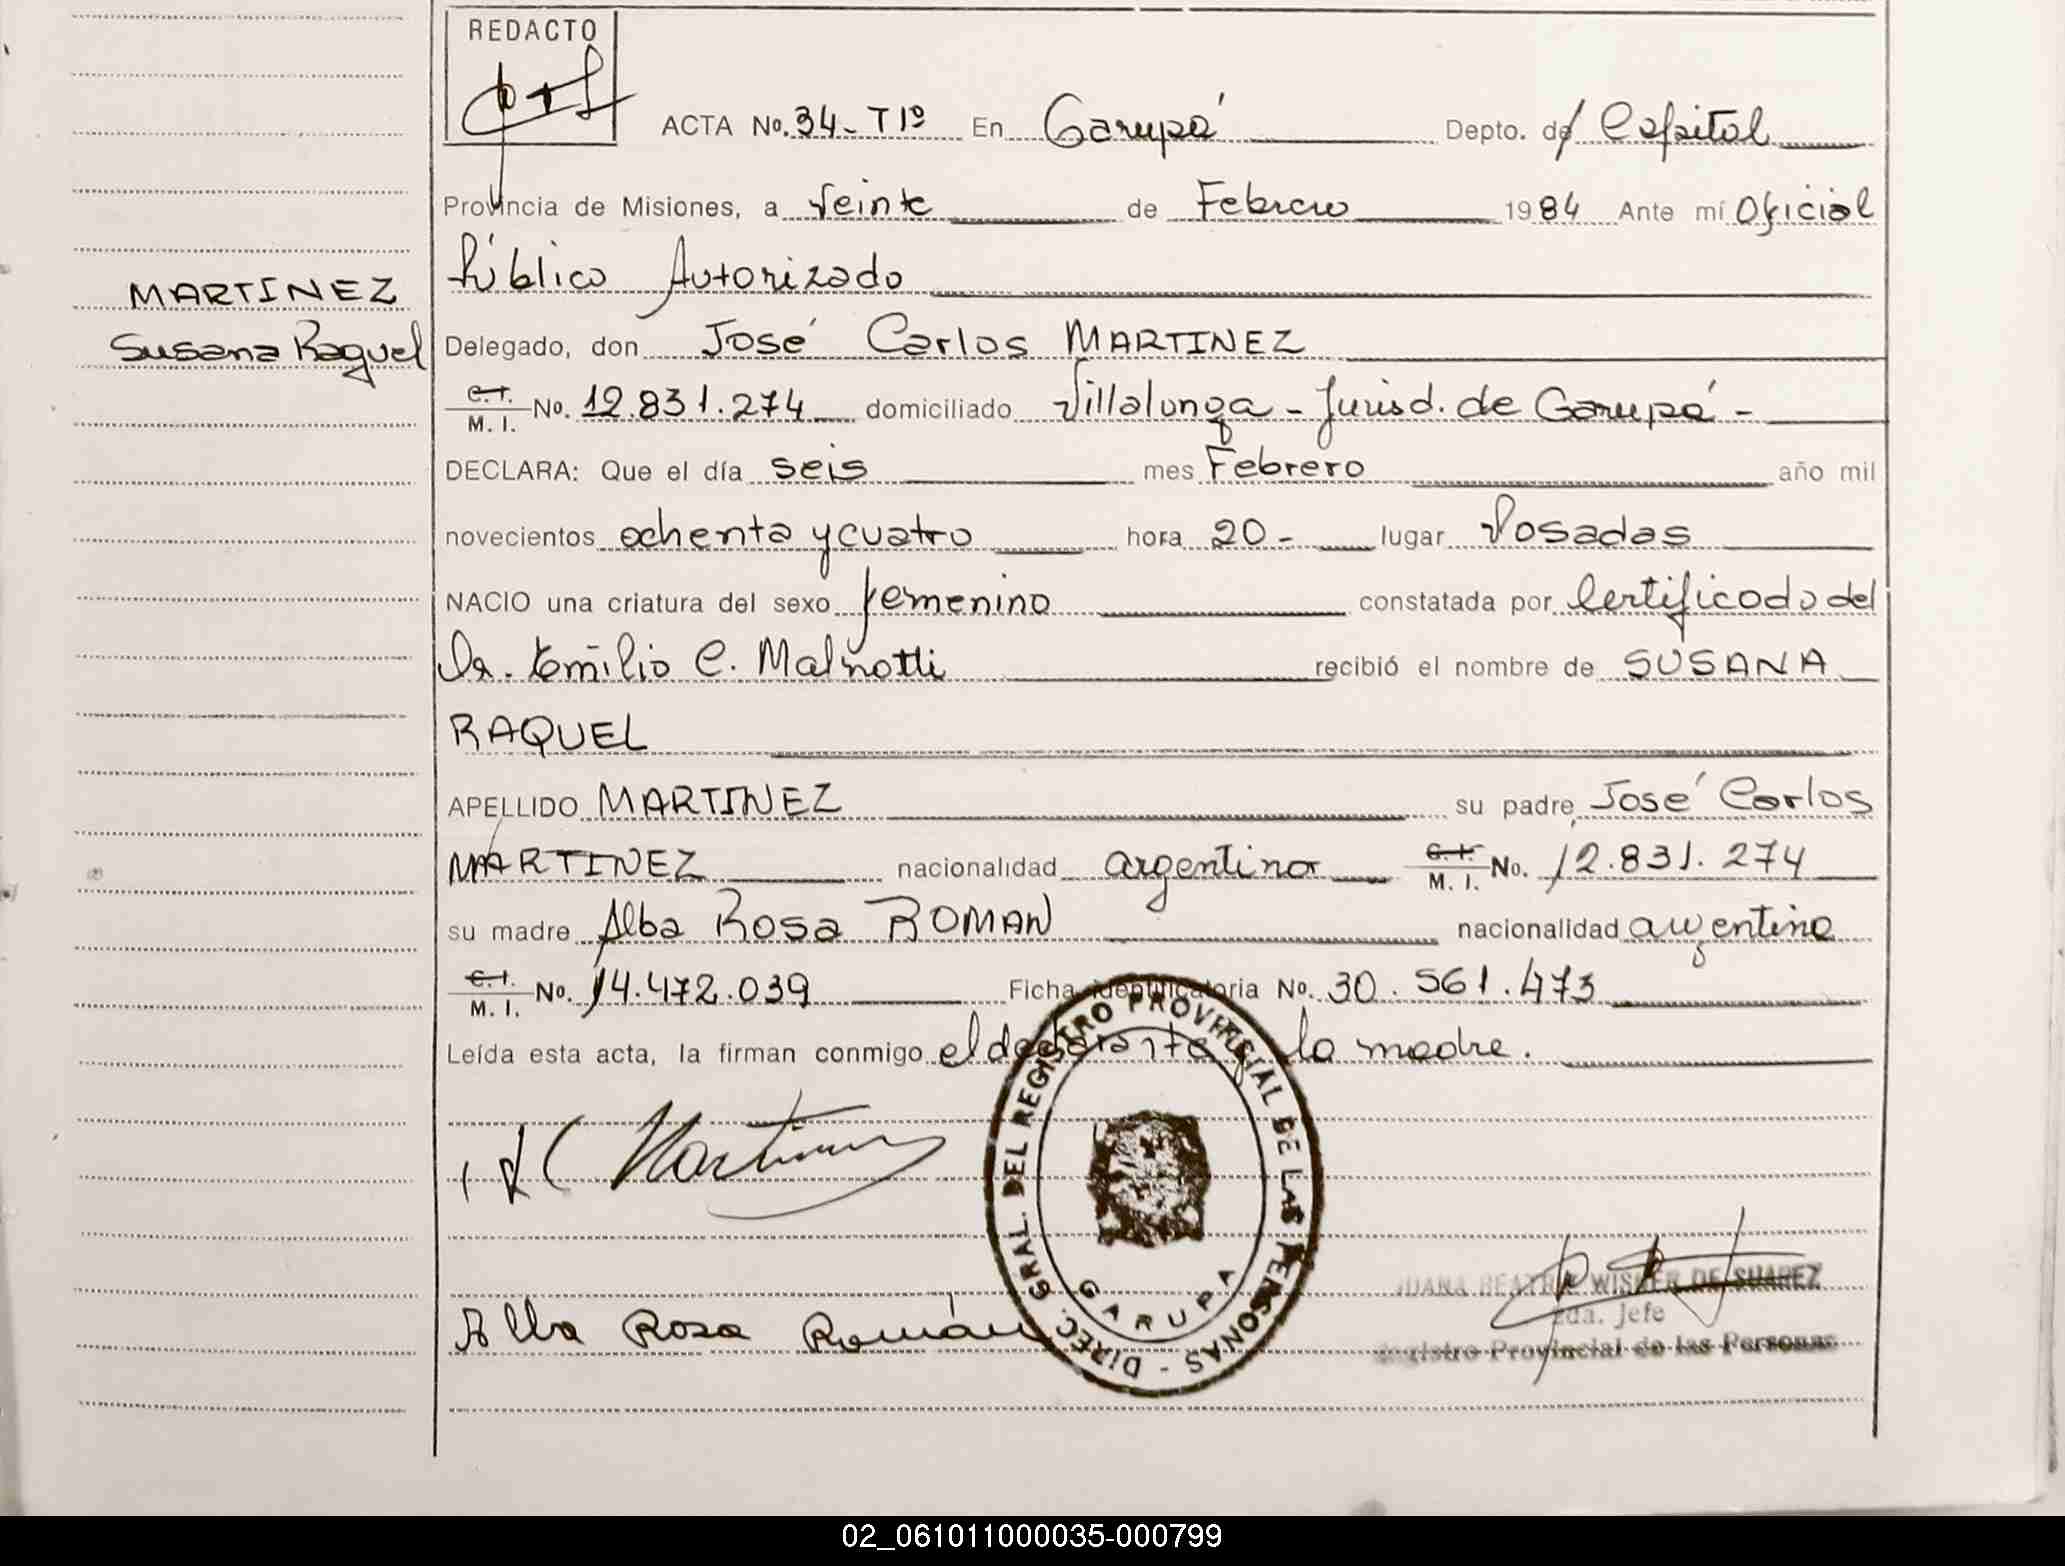 REDACTO
ACTA No. 34- T1º En Garupá Depto. de/ Capital
Provincia de Misiones, a veinte de Febrero 1984 Ante mí Oficial
Público Autorizado
MARTINEZ
Susana Raquel
Delegado, don José Carlos MARTINEZ
C.I. M. I. No. 12.831.274 domiciliado Villalonga - Jurisd. de Garupá -
DECLARA: Que el día seis mes Febrero año mil
novecientos ochenta y cuatro hora 20- lugar Posadas
NACIO una criatura del sexo femenino constatada por Certificado del
Dr. Emilio C. recibió el nombre de SUSANA
RAQUEL
APELLIDO MARTINEZ su padre, José Carlos
MARTINEZ nacionalidad argentina C.I. M. I. No. 12.831.274
su madre Alba Rosa ROMAN nacionalidad argentina
C.I. M. I. No. 14.472.039 Ficha identificatoria No. 30.561.473
Leída esta acta, la firman conmigo el declarante y la madre.
Martinez
DIREC. GRAL. DEL REGISTRO PROVINCIAL DE LAS PERSONAS -
GARUPA
JUANA BEATRIZ WISNER DE SUAREZ
2da. Jefe
Registro Provincial de las Personas
Alba Rosa Román
02_061011000035-000799